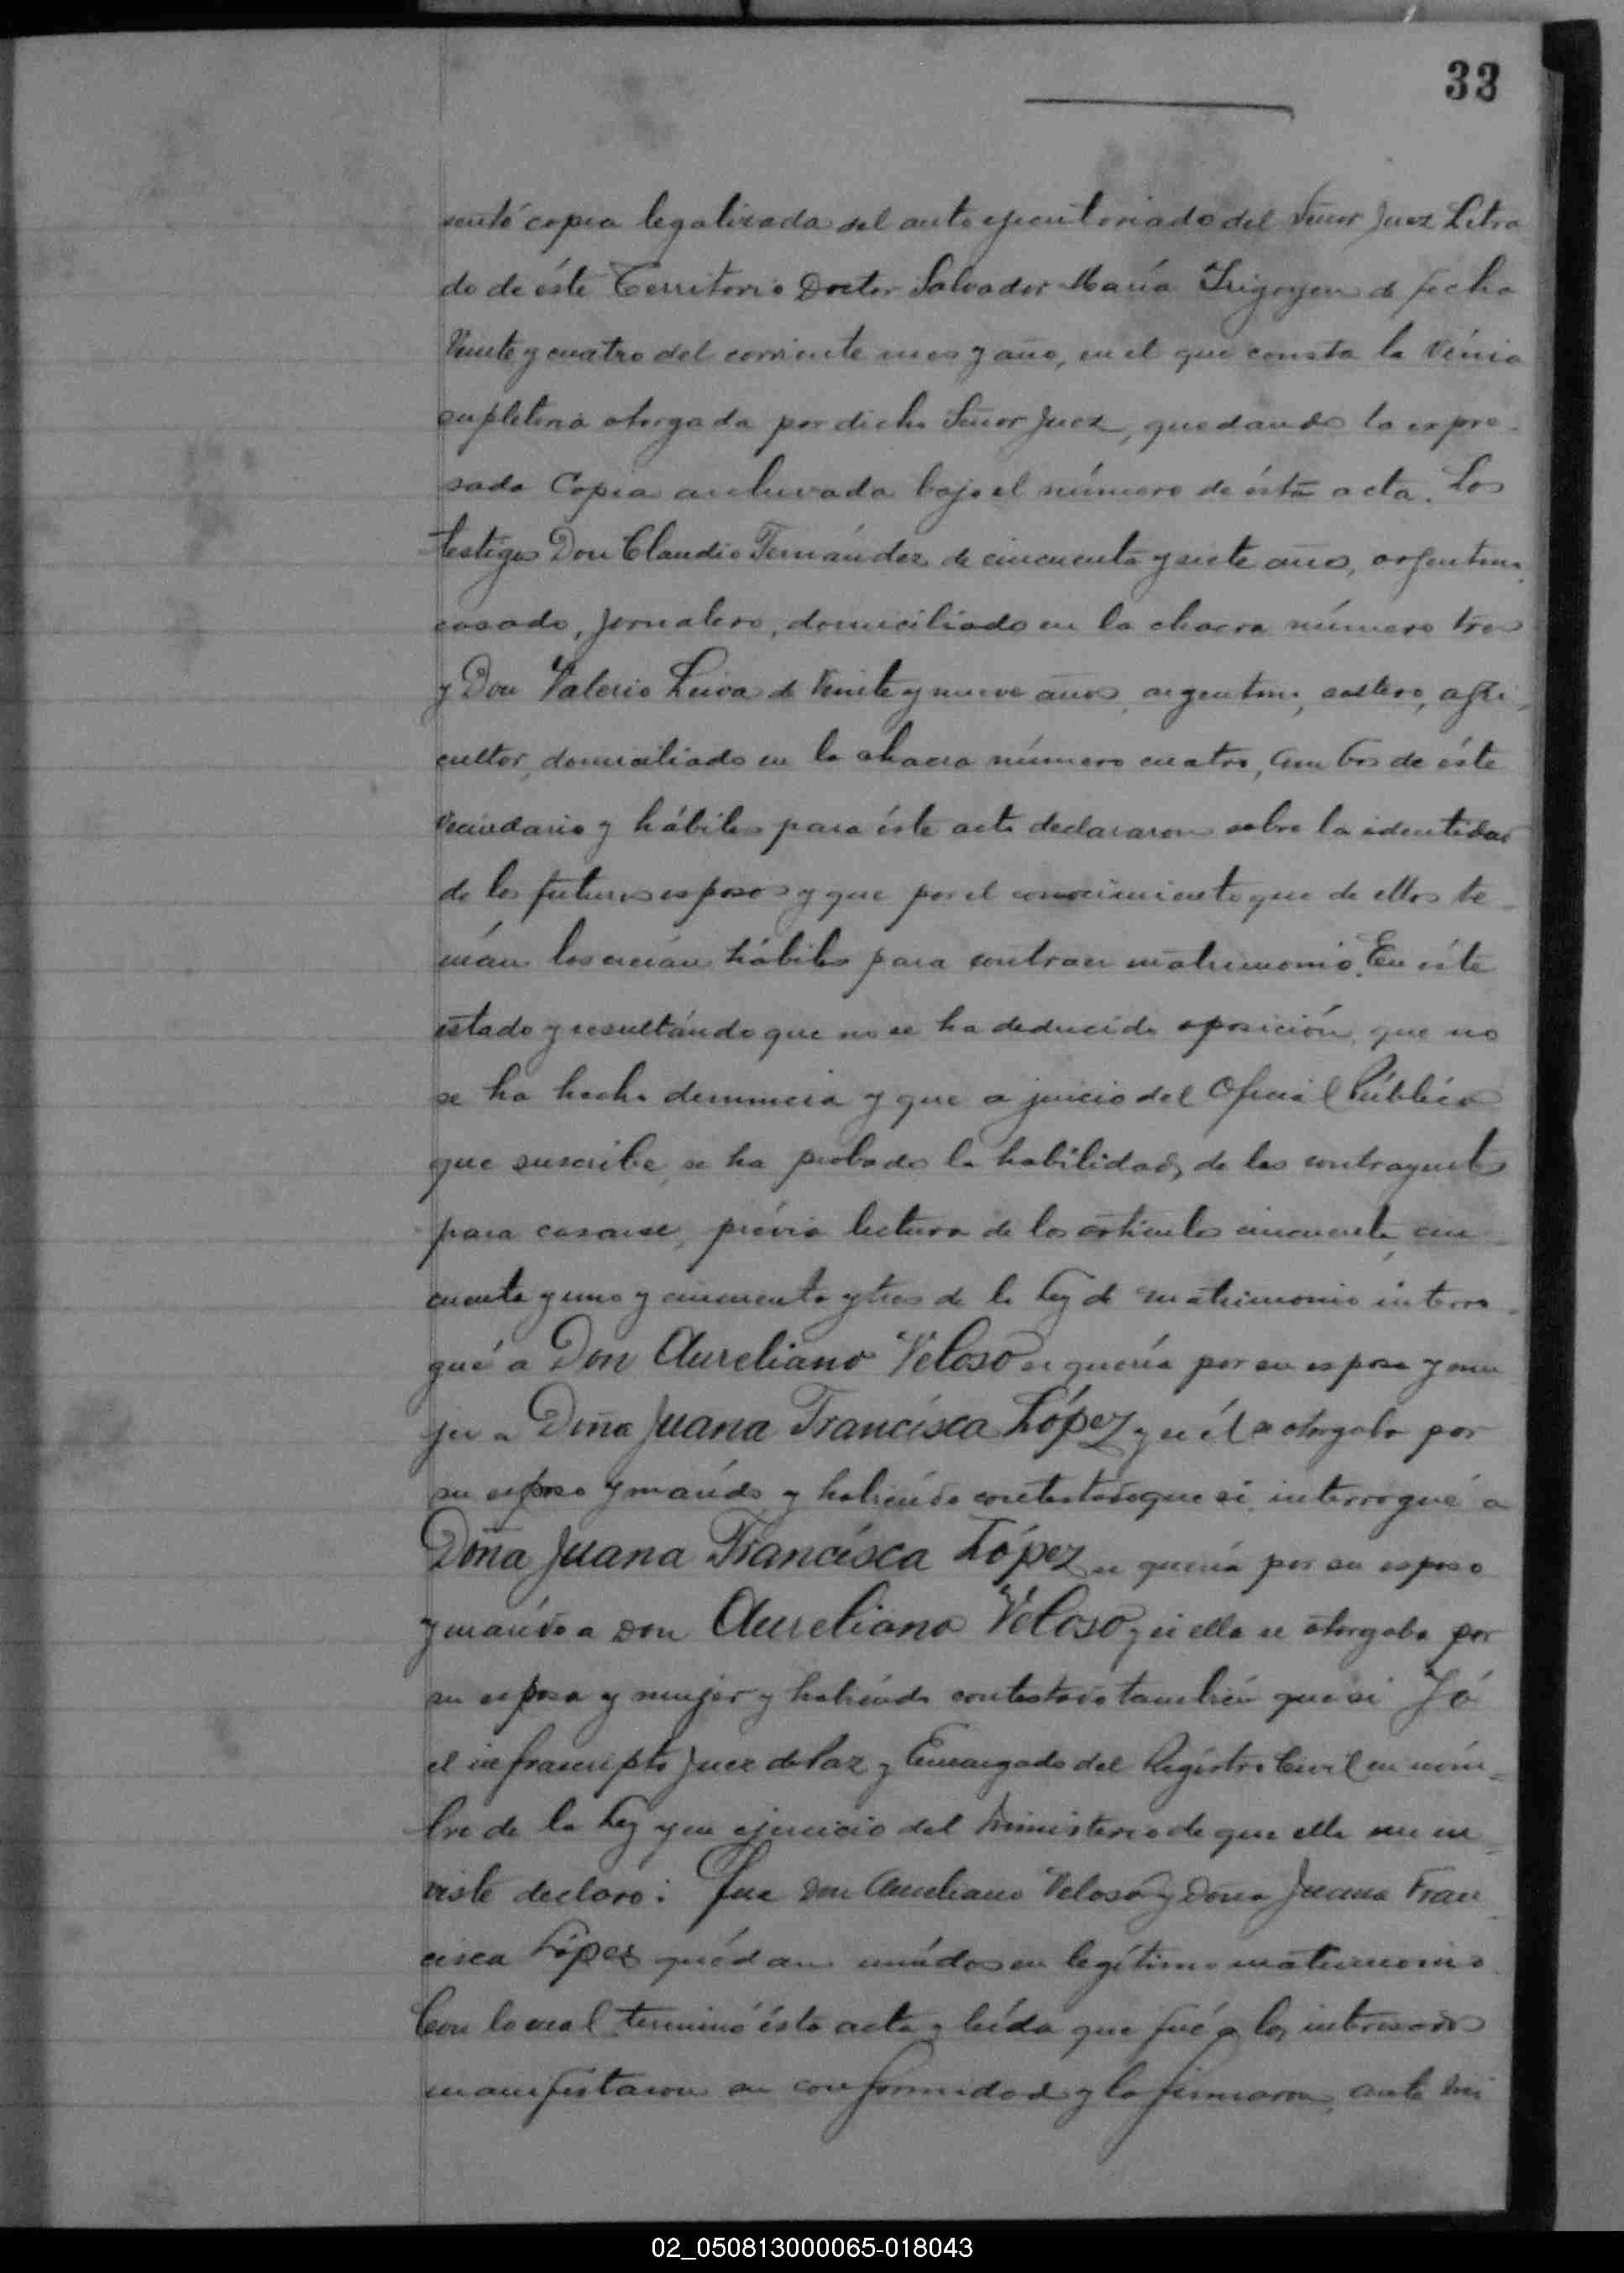 33
sentó copia legalizada del auto ejecutoriado del Señor Juez Letra
do de éste Territorio Doctor Salvador María Irigoyen de fecha
Veinte y cuatro del corriente mes y año, en el que consta la Vénia
supletoria otorgada por dicho Señor Juez, quedando la expre-
sada Copia archivada bajo el número de ésta acta. Los
testigos Don Claudio Fernández de cincuenta y siete años, argentino,
casado, jornalero, domiciliado en la chacra número tres
y Don Valerio Leiva de Veinte y nueve años, argentino, soltero, agri-
cultor, domiciliado en la chacra número cuatro, ambos de éste
Vecindario y hábiles para éste acto declararon sobre la identidad
de los futuros esposos y que por el conocimiento que de ellos te-
nían los creían hábiles para contraer matrimonio. En éste
estado y resultándo que no se ha deducido oposición, que no
se ha hecho denuncia y que a juicio del Oficial Público
que suscribe, se ha probado la habilidad, de los contrayentes
para casarse, prévia lectura de los artículos cincuenta, cin-
cuenta y uno y cincuenta y tres de la Ley de matrimonio interro-
gué a Don Aureliano Veloso si quería por su esposa y mu
jer a Doña Juana Francísca López y si él se otorgaba por
su esposo y marído y habiendo contestado que si, interrogué a
Doña Juana Francísca López si quería por su esposo
y marído a Don Aureliano Veloso y si ella se otorgaba por
su esposa y mujer y habiéndo contestado también que si Yó
el infrascripto Juez de Paz y Encargado del Régistro Civil en nóm-
bre de la Ley y en ejercicio del Ministerio de que ella me in-
viste declaro: Que Don Aureliano Veloso y Doña Juana Fran-
cisca López quédan unídos en legítimo matrimonio.
Con lo cual terminó ésta acta y leída que fué a los interesados
manifestaron su conformidad y la firmaron, ante mi
02_050813000065-018043